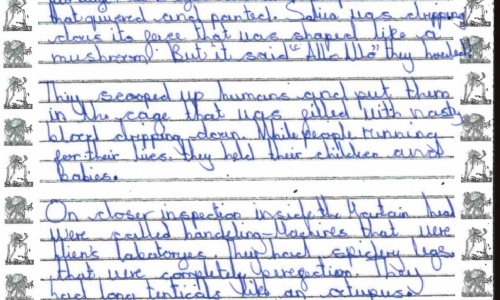 that quivered and panted. Saliva was dripping
down its face that was shaped like a
mushroom. But it said "Alla lla" they howled
They scooped up humans and put them
in the cage that was filled with nasty
blood dripping down. While people running
for their lives, they held their children and
babies.
On closer inspection inside the Martain had
were called handeling-Machines that were
alien's labatorys. Their had spidery legs
that were completely perfection. They
had long tenticals like an octupus